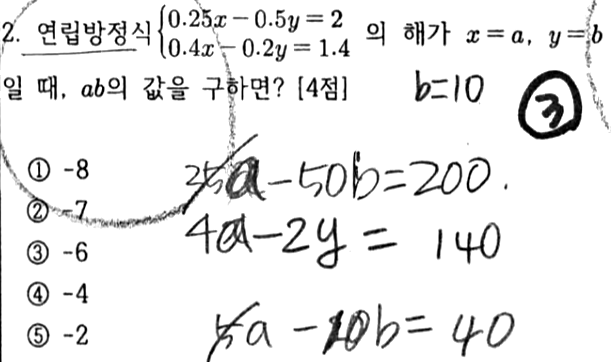 2. 연립방정식 { 0.25x - 0.5y = 2
0.4x - 0.2y = 1.4 의 해가 x = a, y = b
일 때, ab의 값을 구하면? [4점]
b=10
③
① -8
② -7
③ -6
④ -4
⑤ -2
a-50b=200.
4a-2y = 140
a - 10b = 40